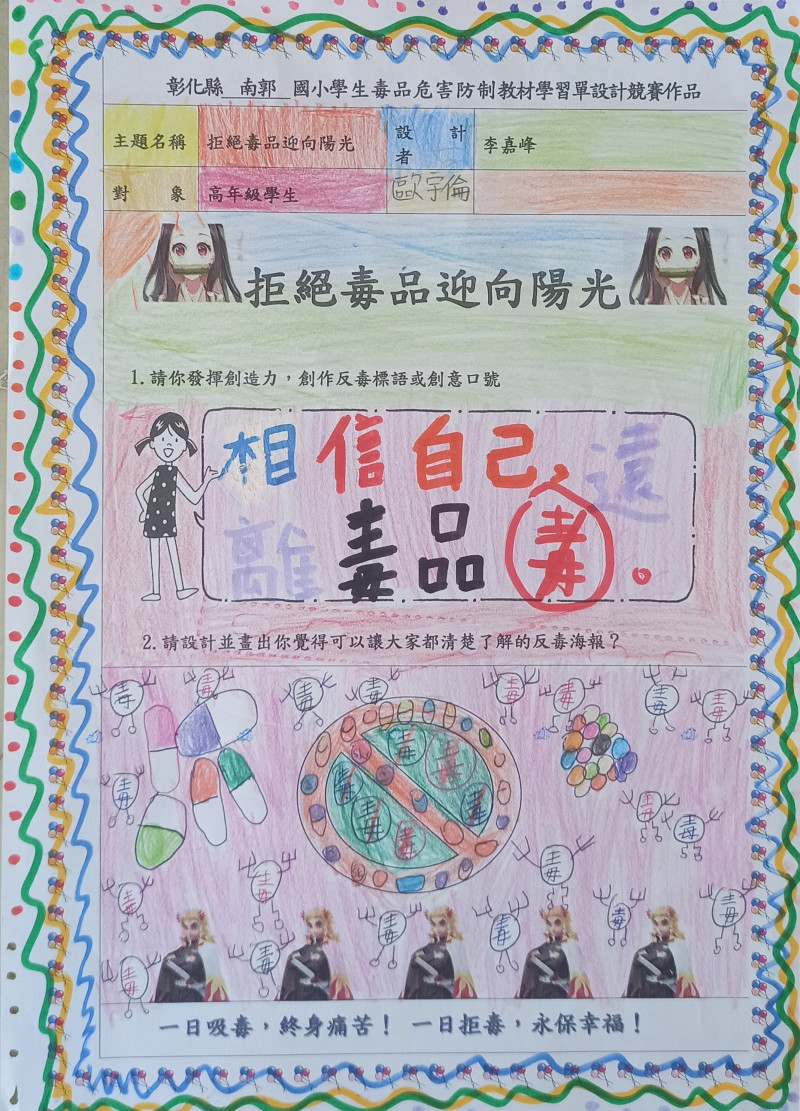 彰化縣 南郭 國小學生毒品危害防制教材學習單設計競賽作品
主題名稱 拒絕毒品迎向陽光 設計者 李嘉峰
對象 高年級學生 歐宇倫
拒絕毒品迎向陽光
1.請你發揮創造力，創作反毒標語或創意口號
相信自己、遠
離毒品毒。
2.請設計並畫出你覺得可以讓大家都清楚了解的反毒海報？
毒 毒 毒 毒 毒 毒 毒 毒
毒 毒 毒
毒 毒 毒 毒 毒 毒
毒 毒 毒
毒 毒 毒 毒 毒 毒
毒 毒
一日吸毒，終身痛苦！ 一日拒毒，永保幸福！